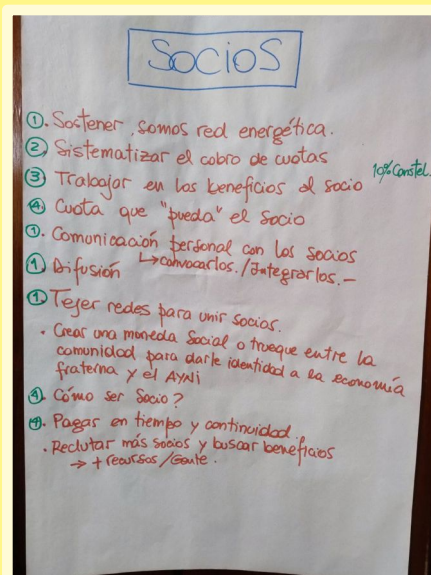 SOCIOS
①. Sostener, somos red energética.
② Sistematizar el cobro de cuotas
③ Trabajar en los beneficios al socio 10% Constel.
④ Cuota que "pueda" el socio
①. Comunicación personal con los socios
↳ convocarlos. / Integrarlos. –
① Difusión
① Tejer redes para unir socios.
• Crear una moneda Social o trueque entre la
comunidad para darle identidad a la economía
fraterna y el AYNi
④. Cómo ser Socio?
④. Pagar en tiempo y continuidad.
• Reclutar más socios y buscar beneficios
→ + recursos / Gente.